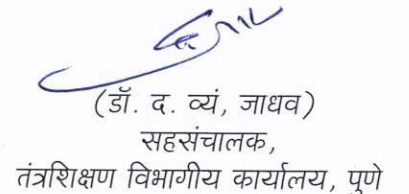 (डॉ. द. व्यं, जाधव)
सहसंचालक,
तंत्रशिक्षण विभागीय कार्यालय, पुणे